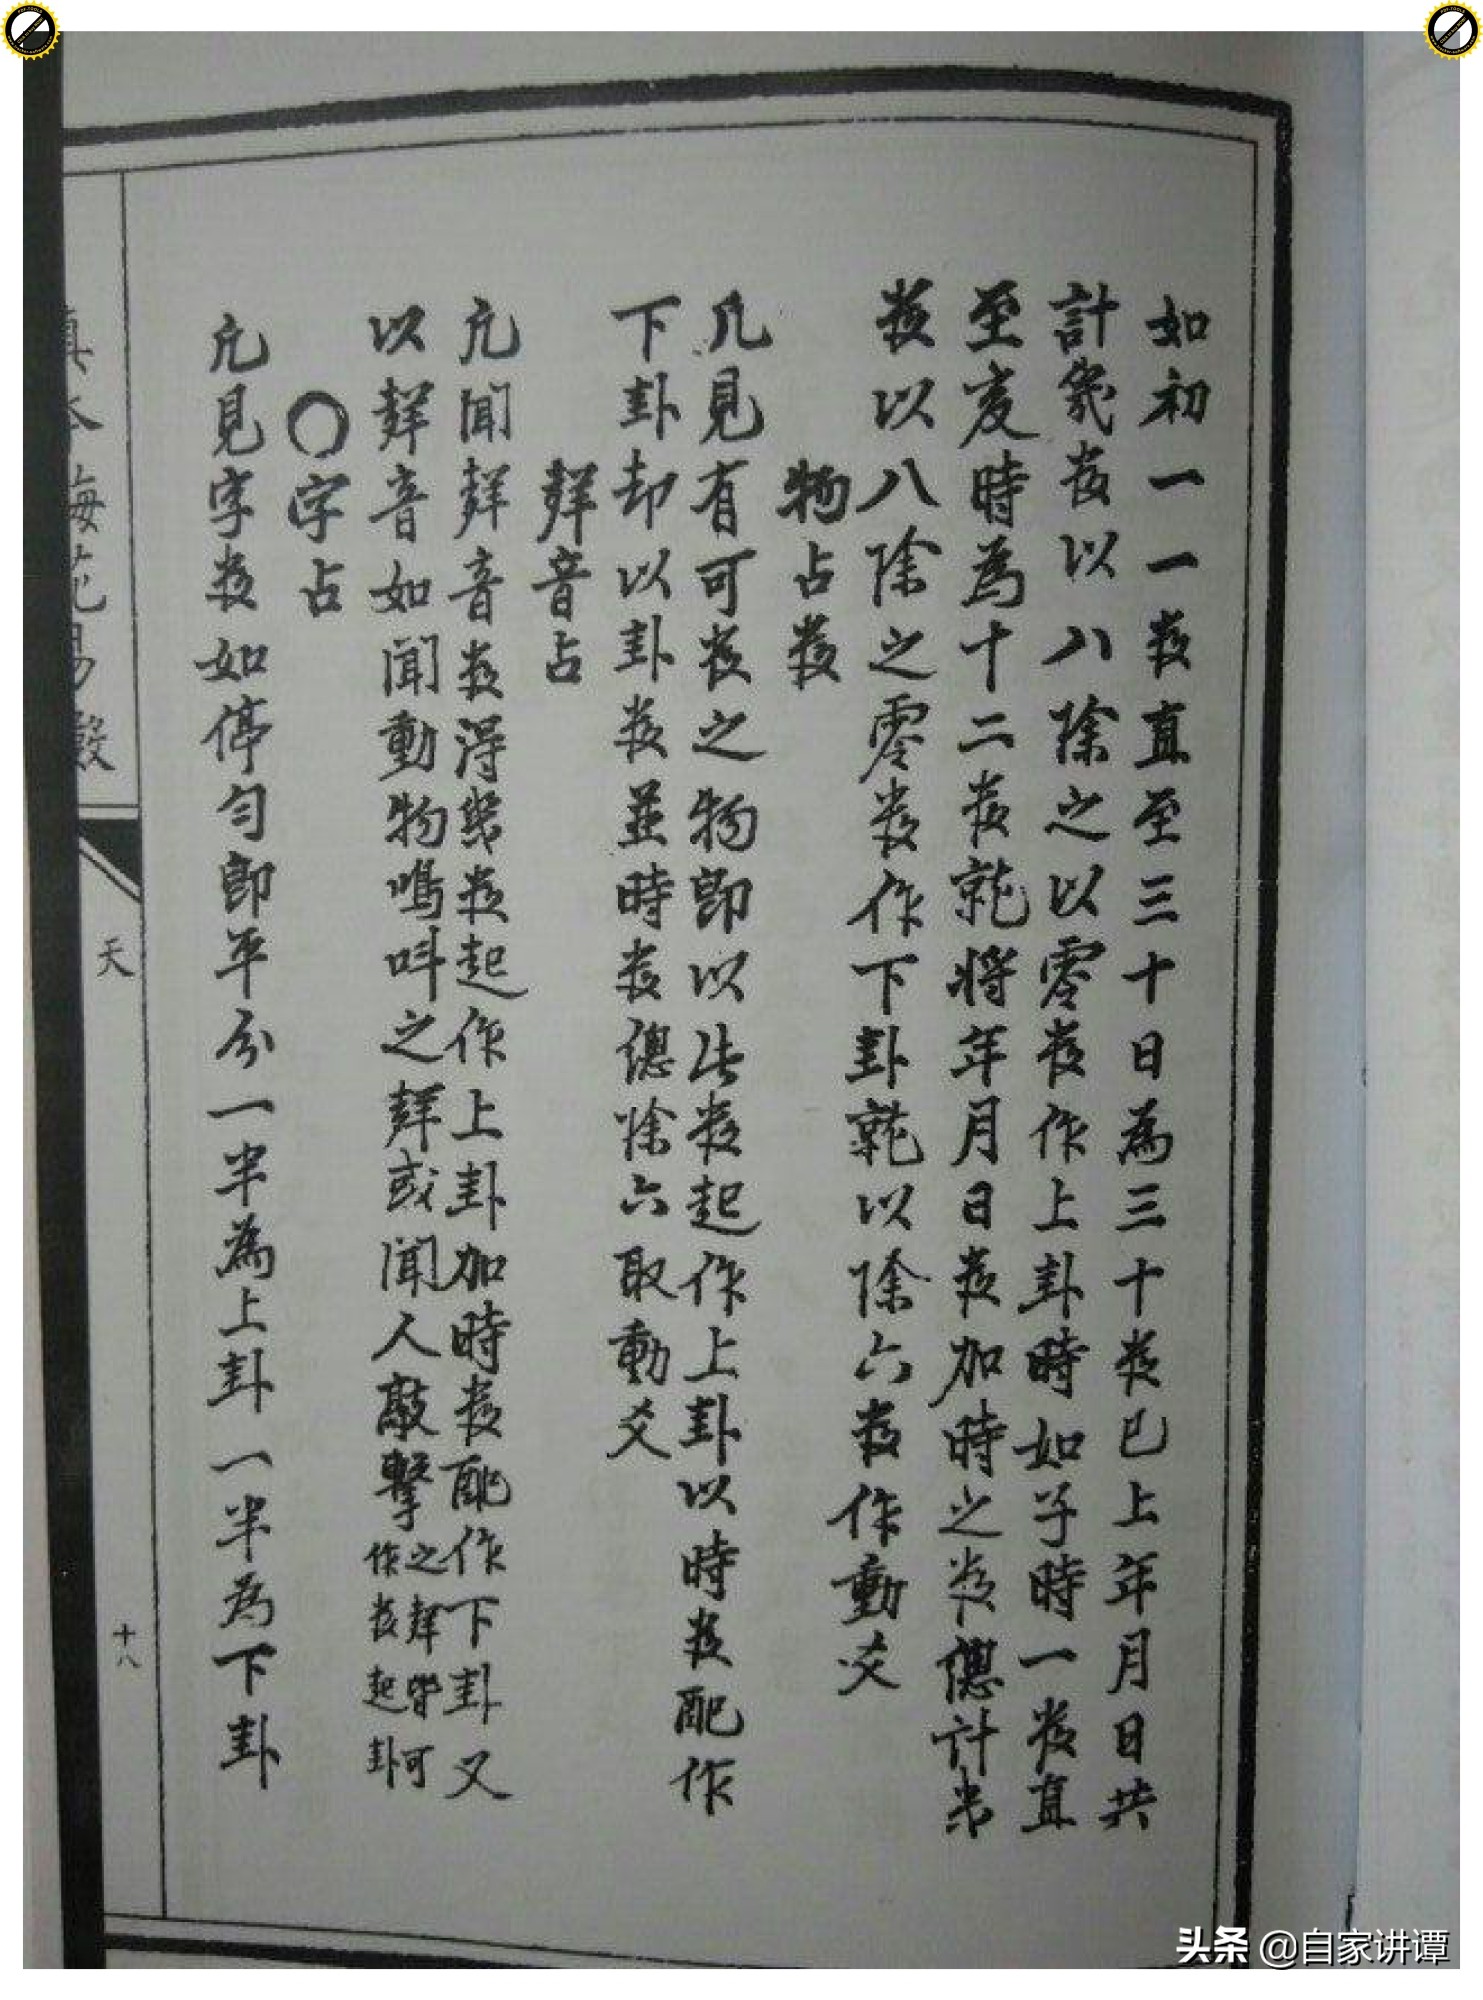 如初一一数直至三十日為三十数已上年月日共
計幾数以八除之以零数作上卦時如子時一数直
至亥時為十二数就将年月日数加時之数總計出
数以八除之零数作下卦就以除六数作動爻
物占数
凡見有可数之物即以此数起作上卦以時数配作
下卦却以卦数並時数總除六取動爻
聲音占
凡聞聲音数得幾数起作上卦加時数配作下卦又
以聲音如聞動物鳴叫之聲或聞人敲擊之聲皆可作数起卦
○字占
凡見字数如停匀即平分一半為上卦一半為下卦
真本梅花易数
天
十八
头条 @自家讲谭